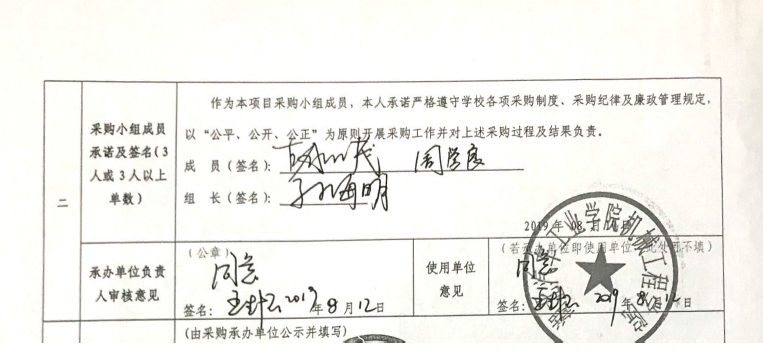 作为本项目采购小组成员，本人承诺严格遵守学校各项采购制度、采购纪律及廉政管理规定，
采购小组成员
承诺及签名（3
人或3人以上
单数）
以“公平、公开、公正”为原则开展采购工作并对上述采购过程及结果负责。
成 员（签名）：周学良
组 长（签名）：
二
2019年08月
承办单位负责
人审核意见
（公章）
同意
签名：2019年8月12日
使用单位
意见
（若承办单位即使用单位，此处不填）
同意
签名：2019年8月12日
工业学院机械工程
（由采购承办单位公示并填写）